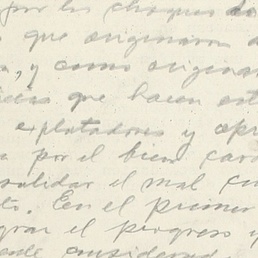 por los choques de
que originaron
, y como origina
que hacen est
explotadores y opr
por el bien
solidar el mal cu
to. En el primer
grar el progreso y